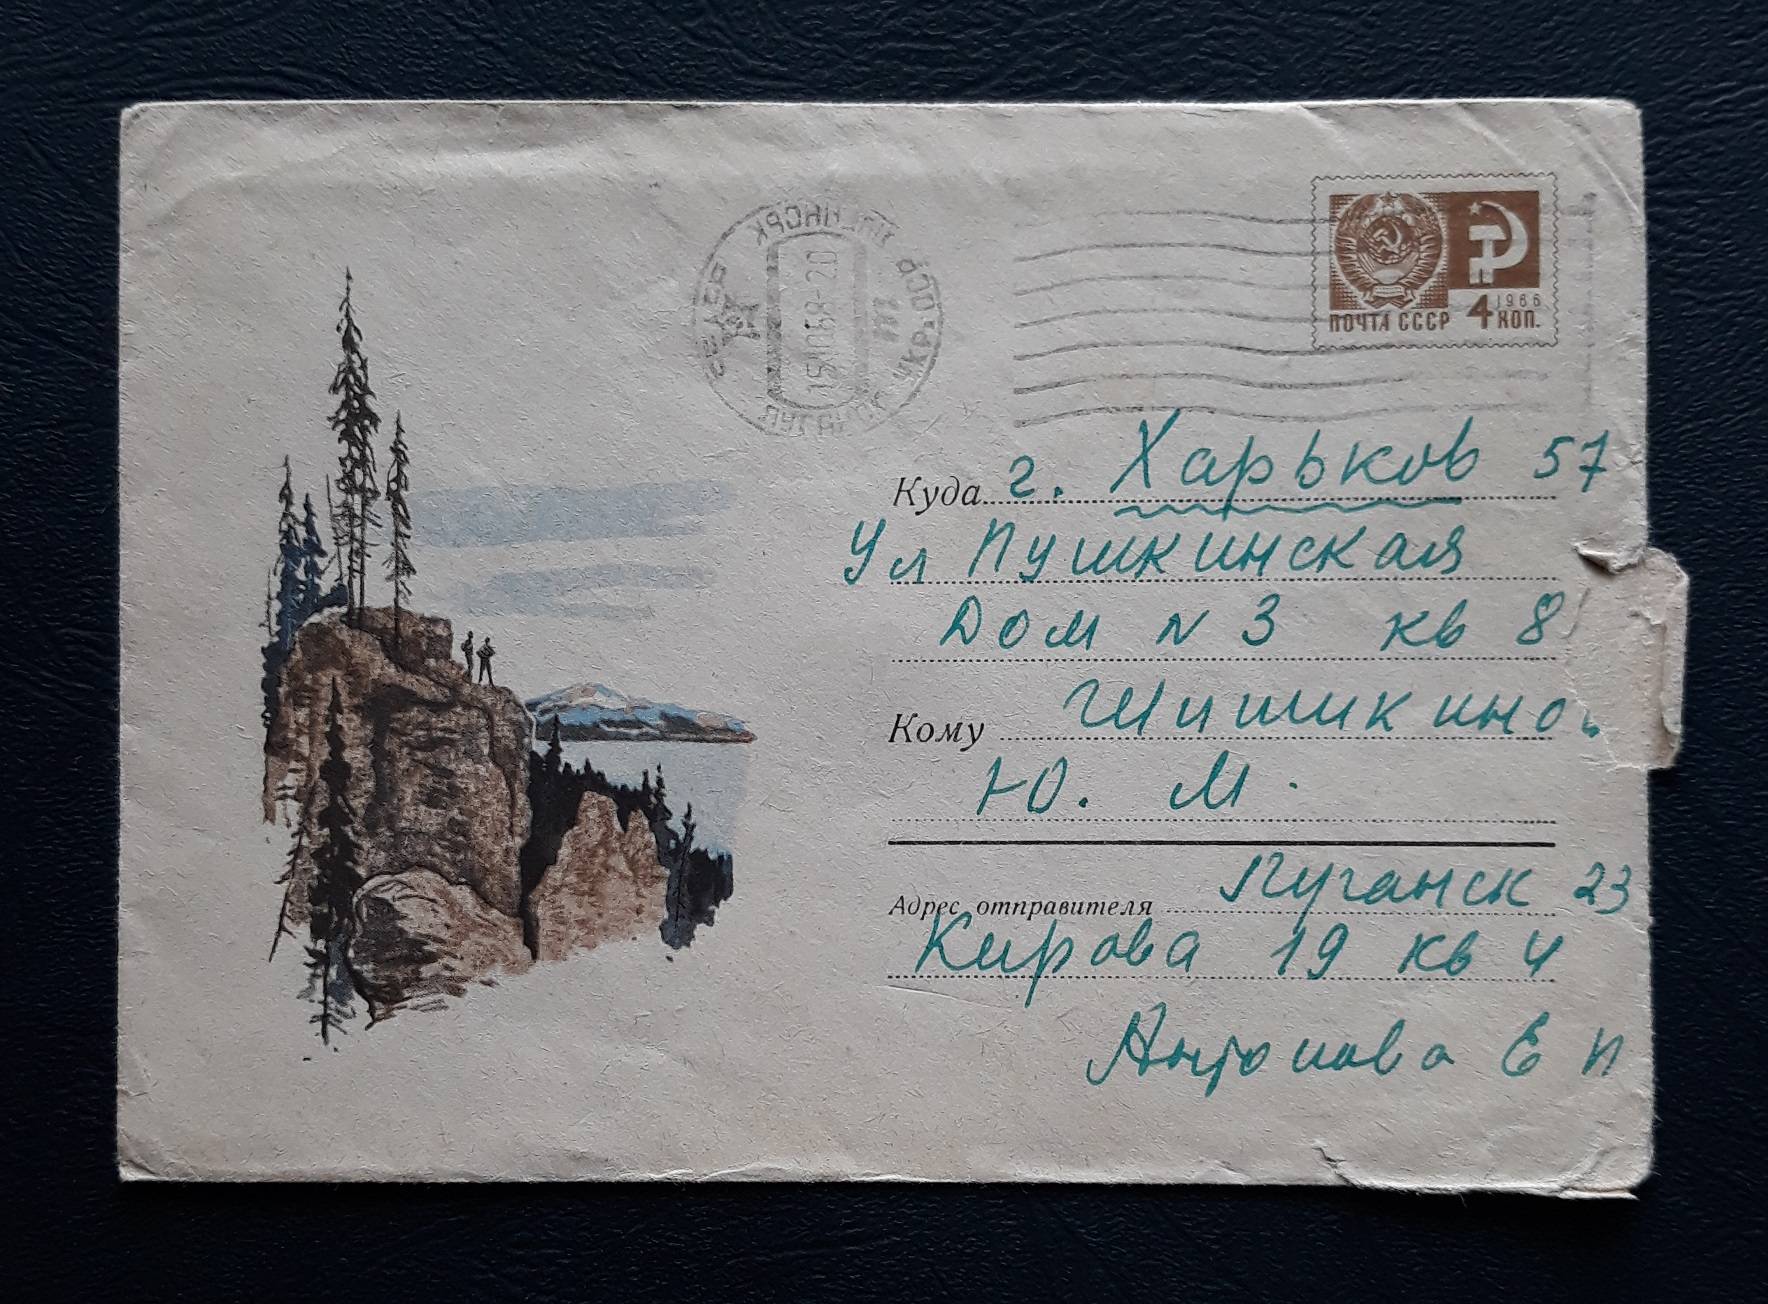 ЛУГАНСК УКР. ССР
15 10 68-20
1966
ПОЧТА СССР 4 КОП.
Куда г. Харьков 57
Ул Пушкинская
Дом N 3 кв 8
Кому Шишкино
Ю. М.
Адрес отправителя Луганск 23
Кирова 19 кв 4
Антонова Е П